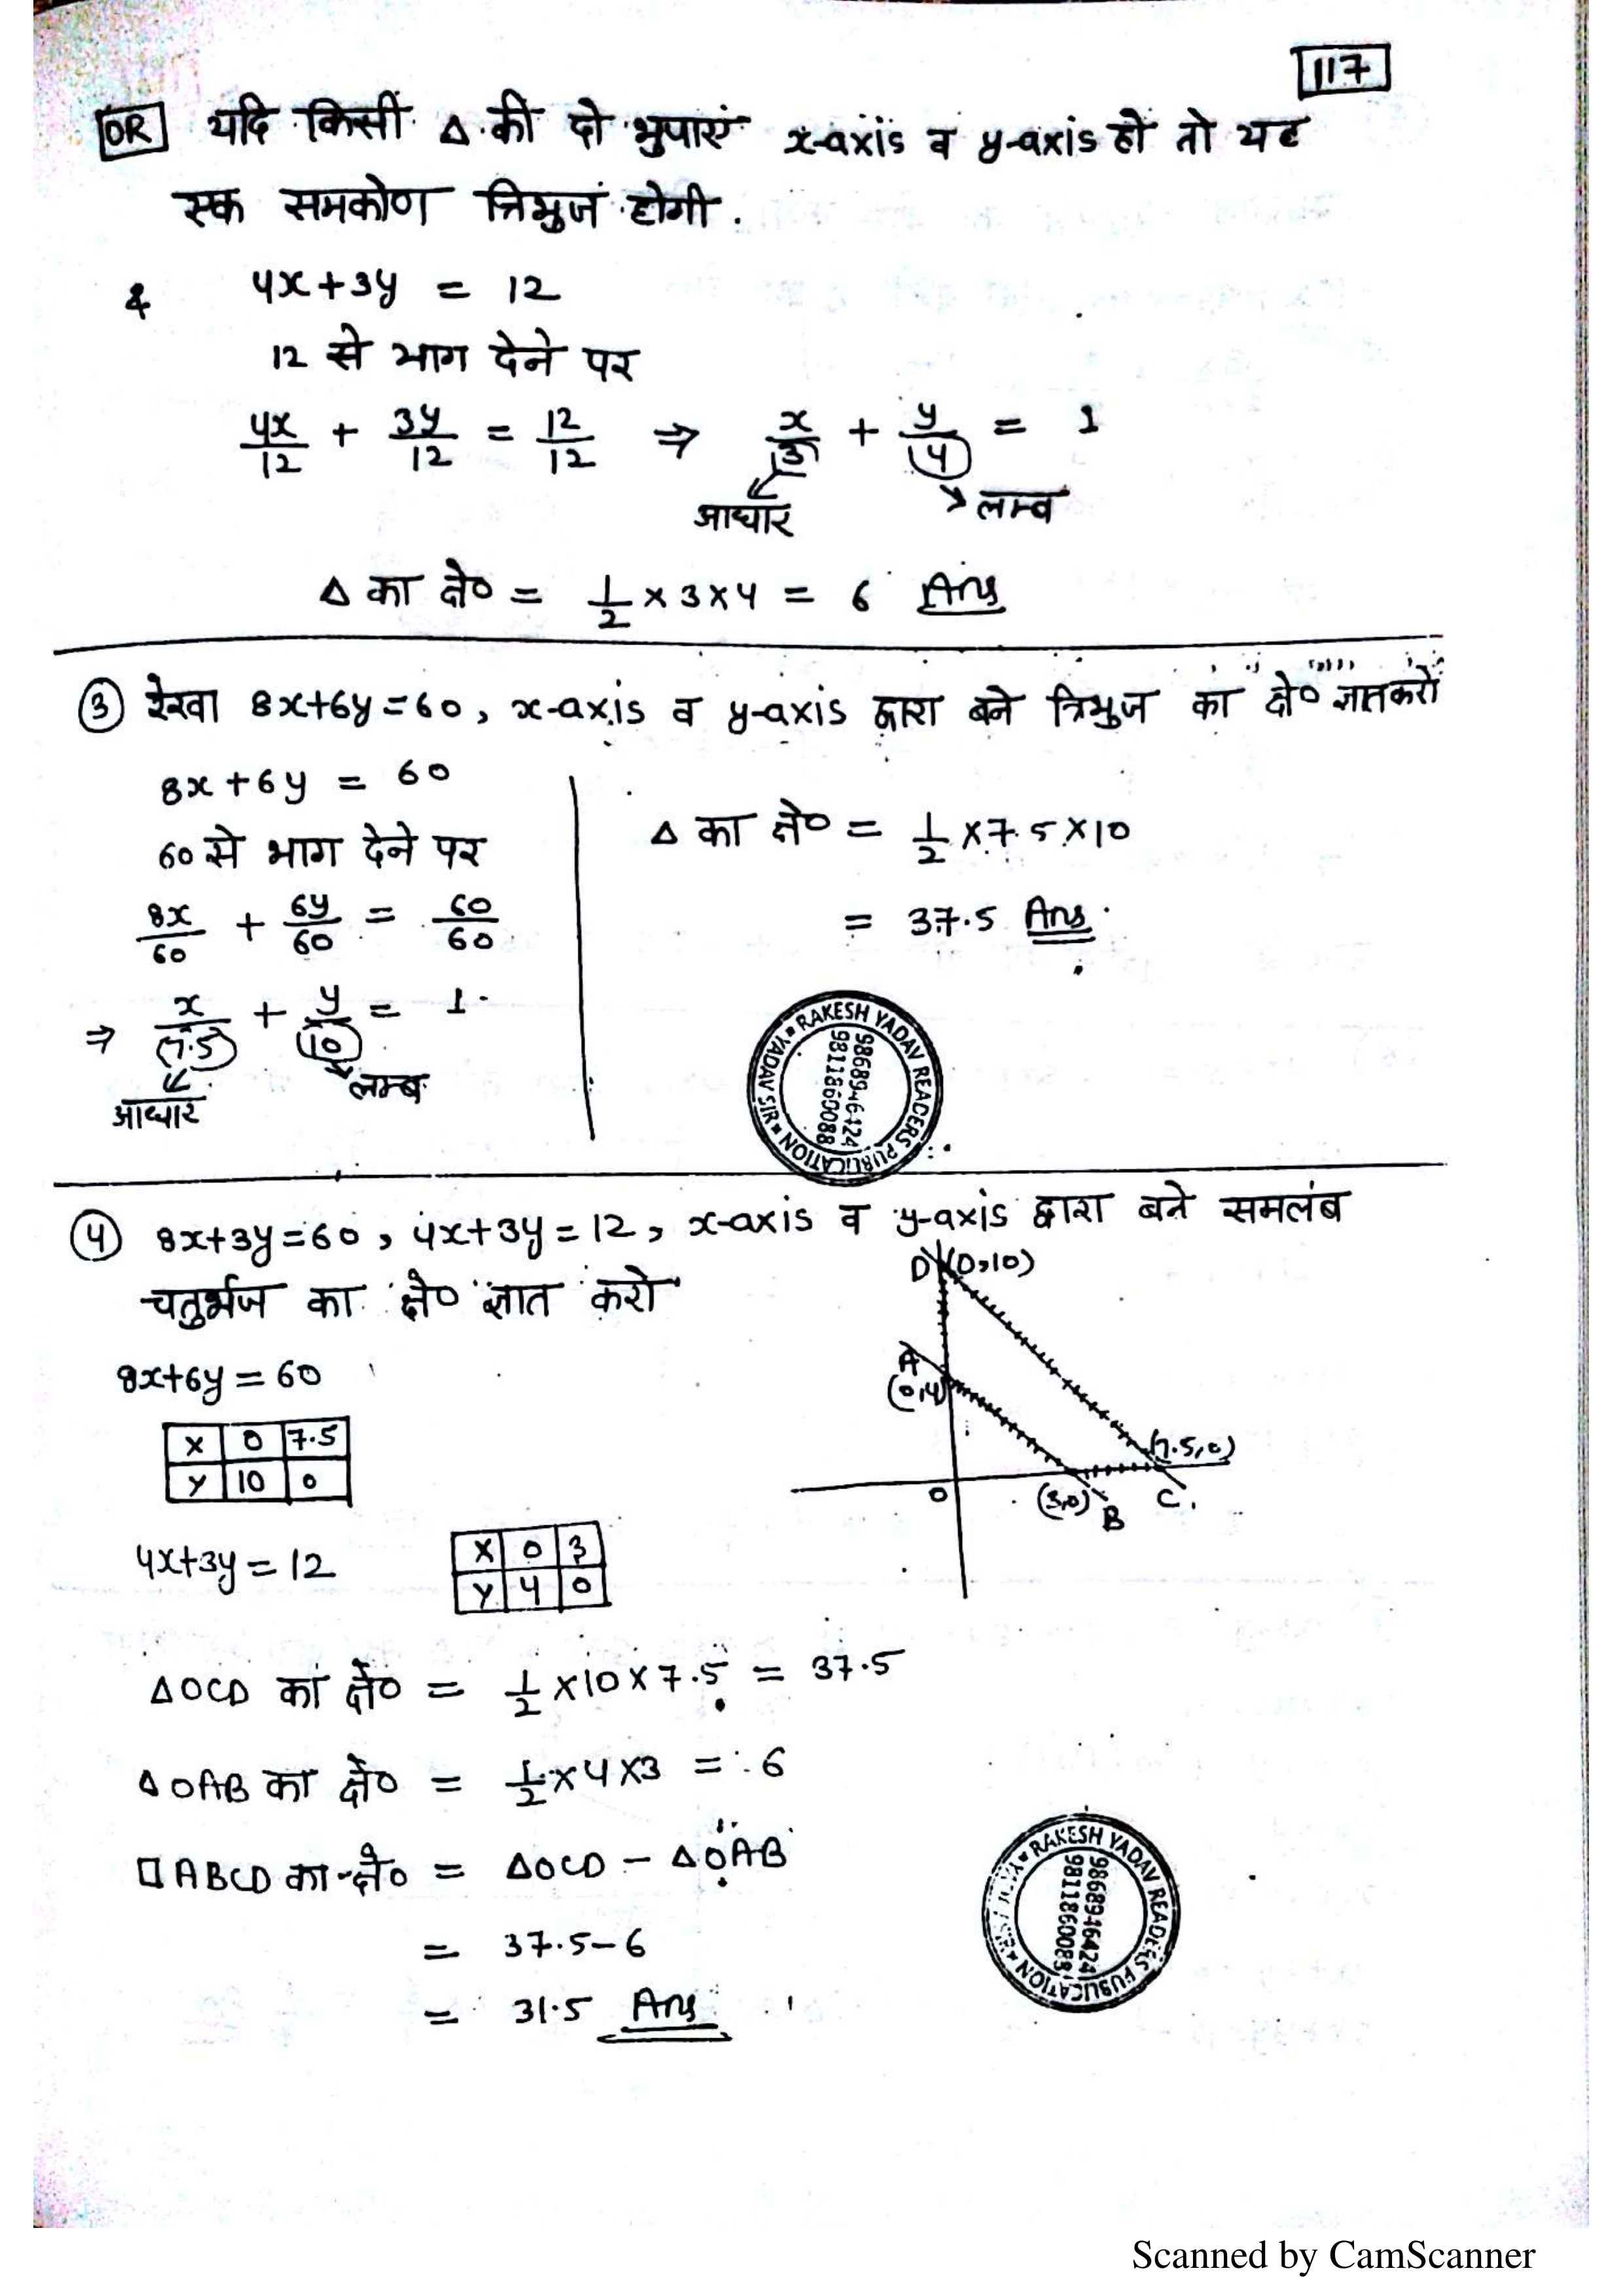 117
OR यदि किसी Δ की दो भुजाएं x-axis व y-axis हो तो यह
एक समकोण त्रिभुज होगी.
& 4x+3y = 12
12 से भाग देने पर
4x/12 + 3y/12 = 12/12 ⇒ x/3 + y/4 = 1
आधार लम्ब
Δ का क्षे० = 1/2 × 3 × 4 = 6 Ans
③ रेखा 8x+6y=60, x-axis व y-axis द्वारा बने त्रिभुज का क्षे० ज्ञात करो
8x+6y = 60
60 से भाग देने पर
8x/60 + 6y/60 = 60/60
⇒ x/7.5 + y/10 = 1
आधार लम्ब
Δ का क्षे० = 1/2 × 7.5 × 10
= 37.5 Ans
RAKESH YADAV READERS PUBLICATION YADAV SIR
9868946424
9811860088
④ 8x+3y=60, 4x+3y=12, x-axis व y-axis द्वारा बने समलंब
चतुर्भज का क्षे० ज्ञात करो
8x+6y=60
X 0 7.5
Y 10 0
4x+3y=12
X 0 3
Y 4 0
D (0,10)
A
(0,4)
(7.5,0)
O (3,0) B C
ΔOCD का क्षे० = 1/2 × 10 × 7.5 = 37.5
ΔOAB का क्षे० = 1/2 × 4 × 3 = 6
□ABCD का क्षे० = ΔOCD − ΔOAB
= 37.5−6
= 31.5 Ans
RAKESH YADAV READERS PUBLICATION
9868946424
9811860088
Scanned by CamScanner